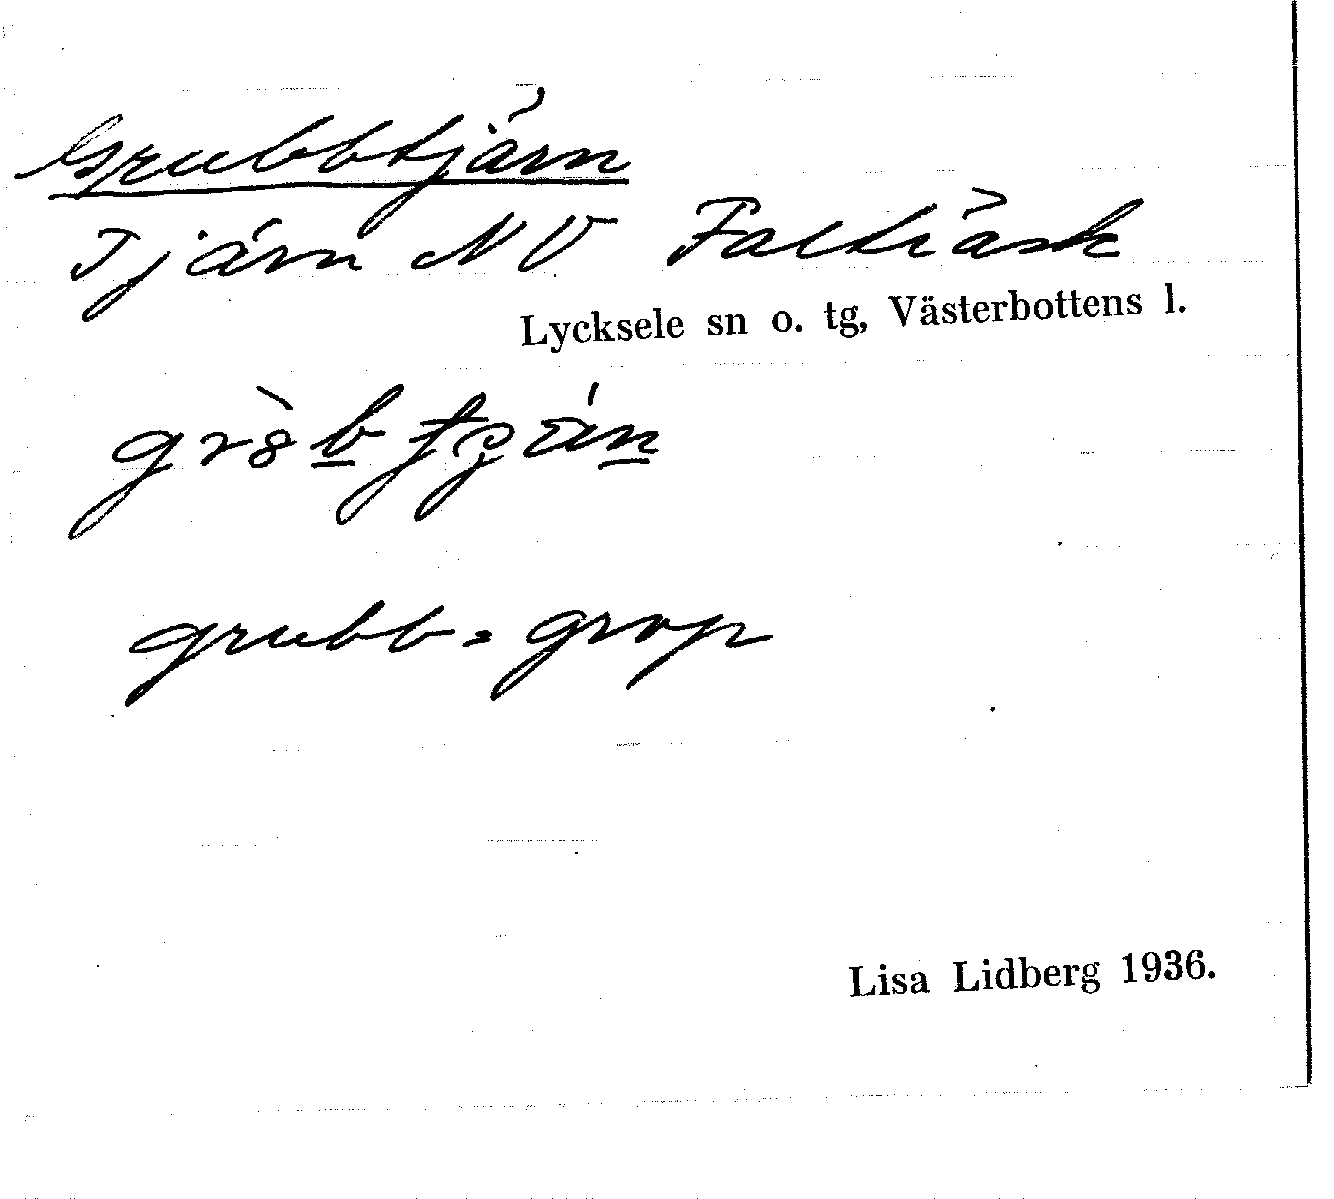 Grubbtjärn
Tjärn NV Falträsk
Lycksele sn o. tg, Västerbottens l.
grubb = grop
Lisa Lidberg 1936.